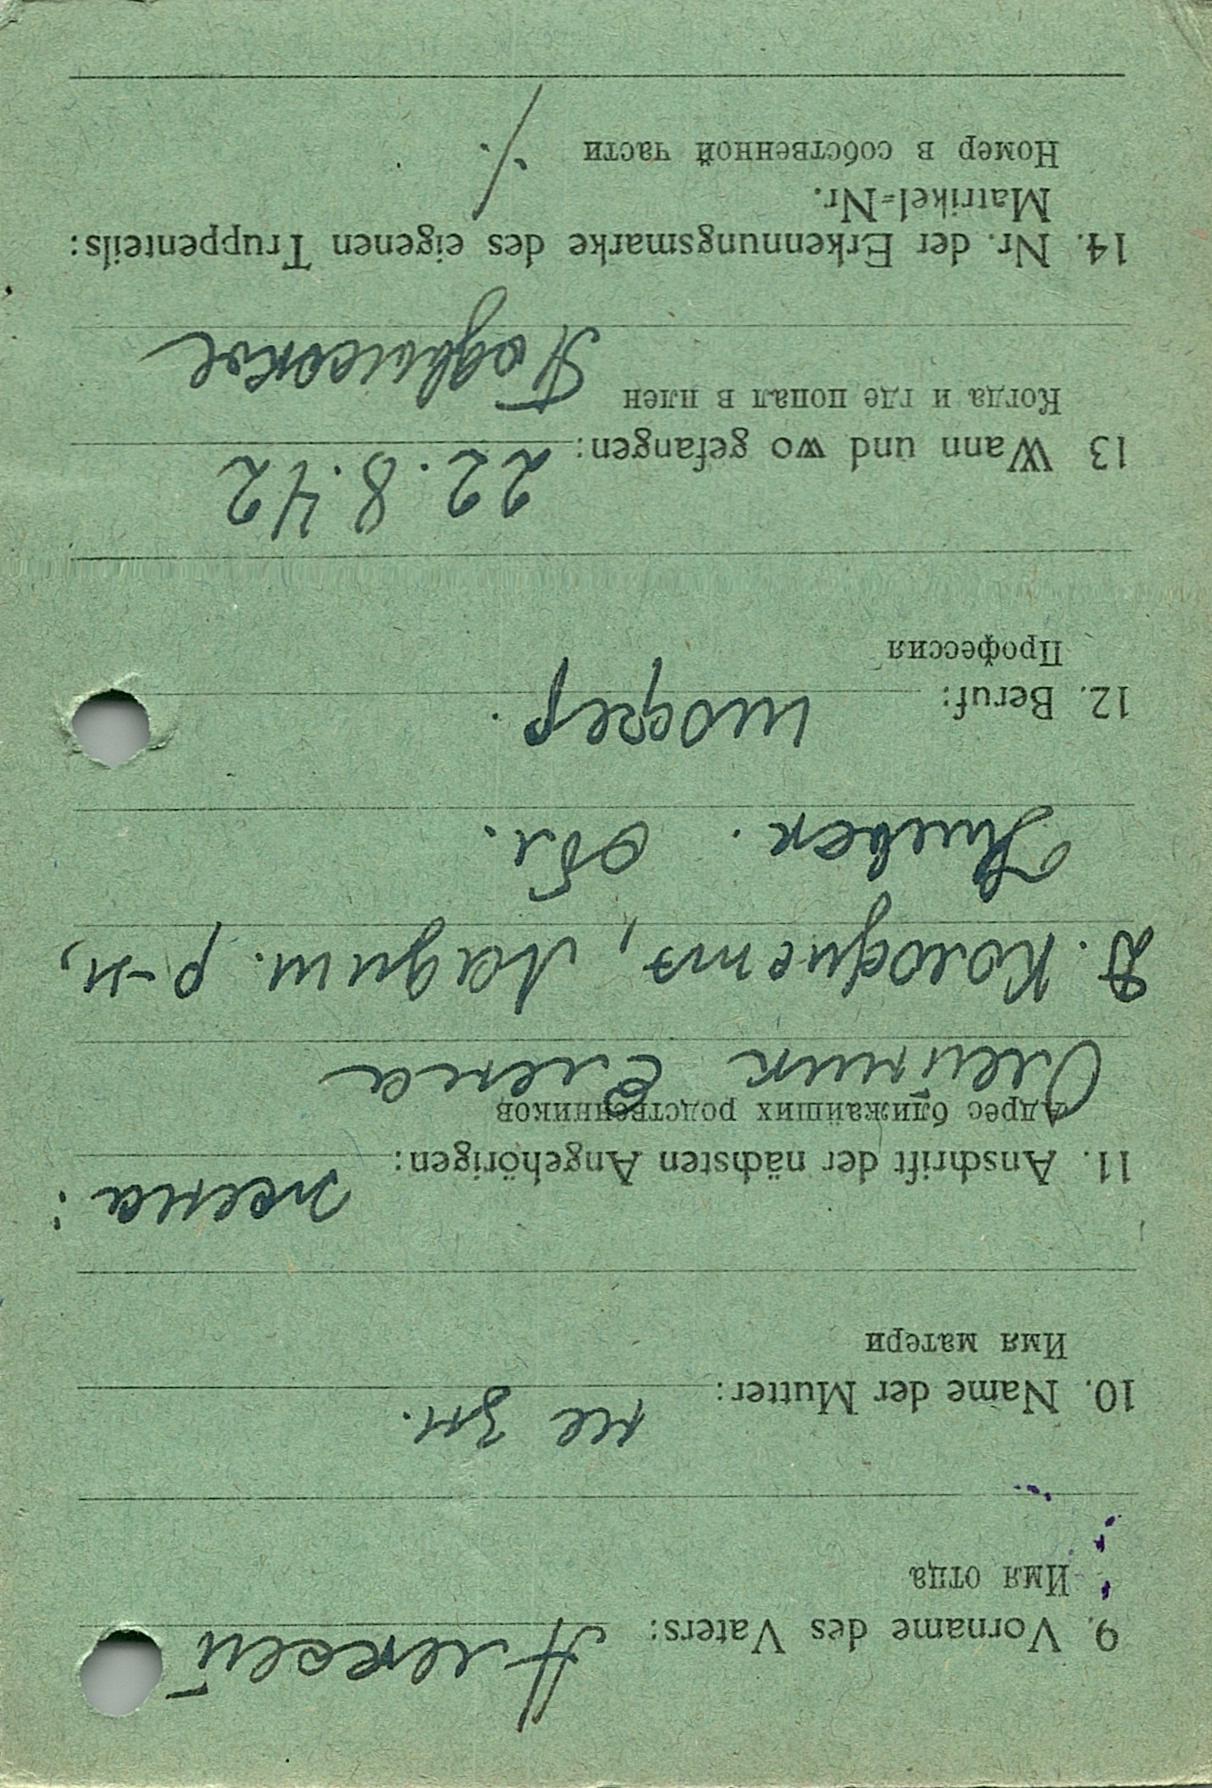 9. Vorname des Vaters: Алексей
Имя отца
10. Name der Mutter: не зн.
Имя матери
11. Anschrift der nächsten Angehörigen: жена:
Адрес ближайших родственников
Олейник Елена
Д. Колодистэ, Ладиж. р-н,
Киевск. Обл.
12. Beruf: шофер.
Профессия
13 Wann und wo gefangen: 22.8.42
Когда и где попал в плен
Подвысокое
14. Nr. der Erkennungsmarke des eigenen Truppenteils:
Matrikel-Nr.
Номер в собственной части ·/.